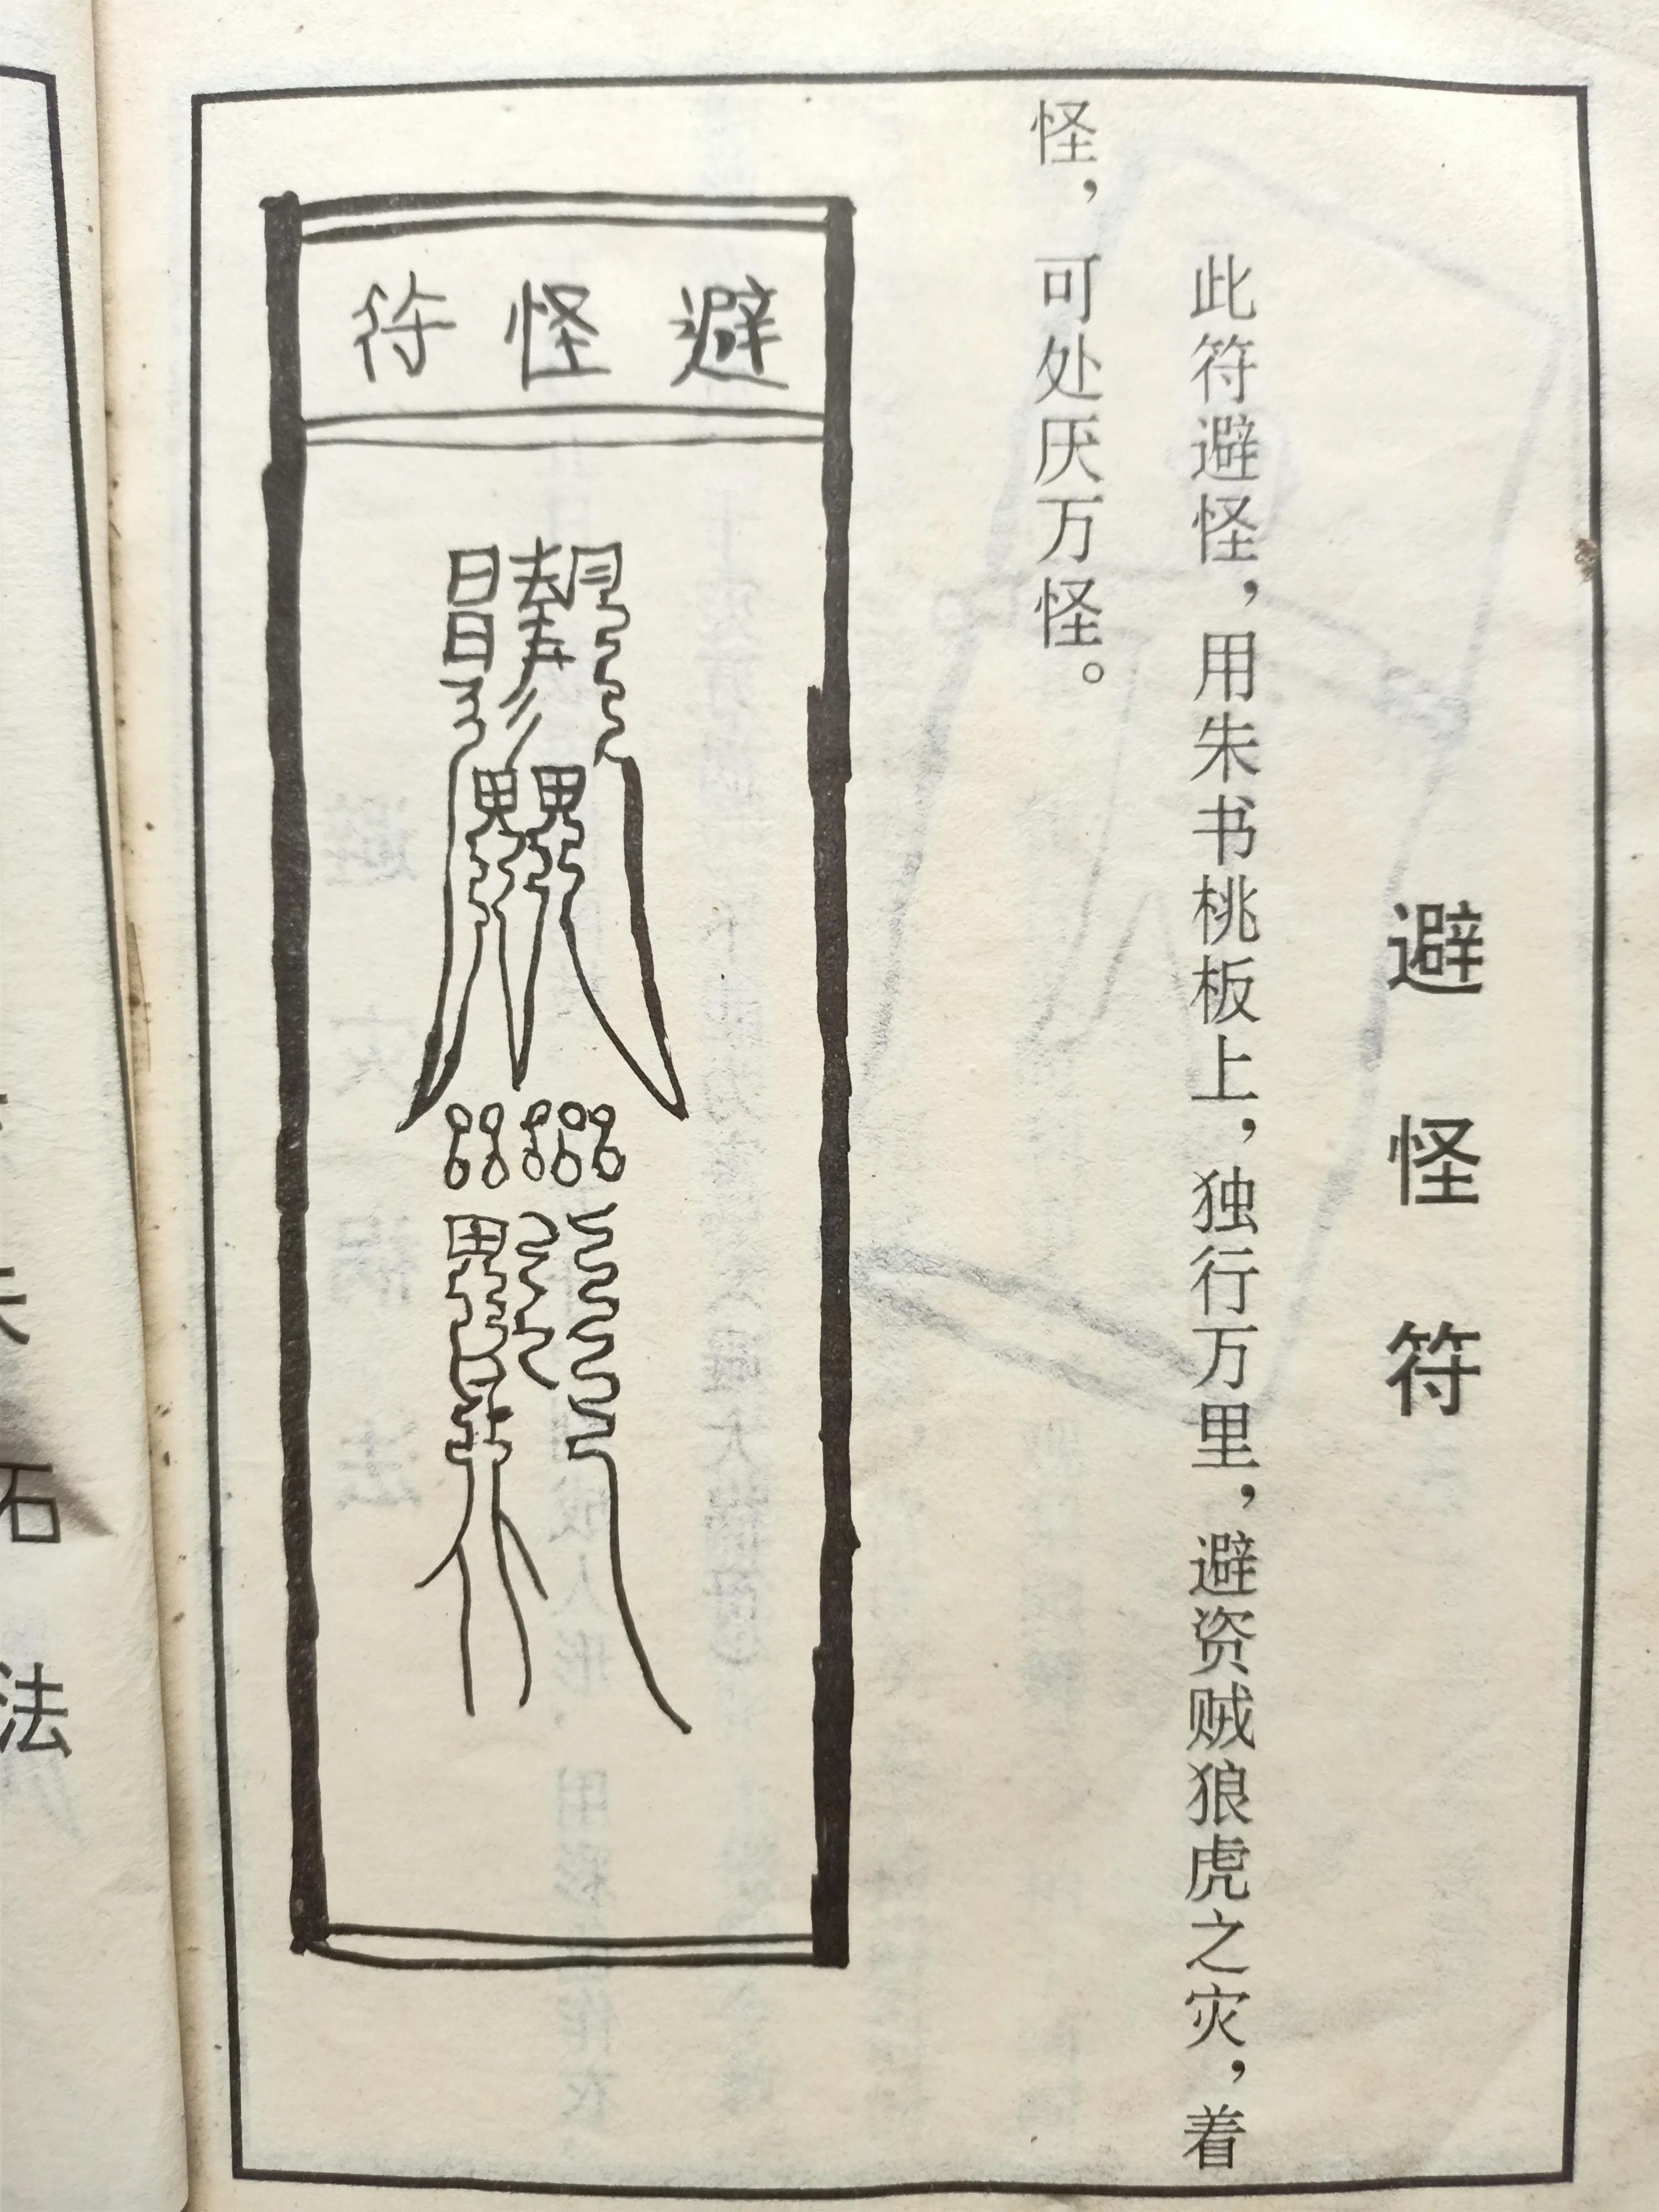 避怪符
此符避怪，用朱书桃板上，独行万里，避资贼狼虎之灾，着
怪，可处厌万怪。
避怪符
石法